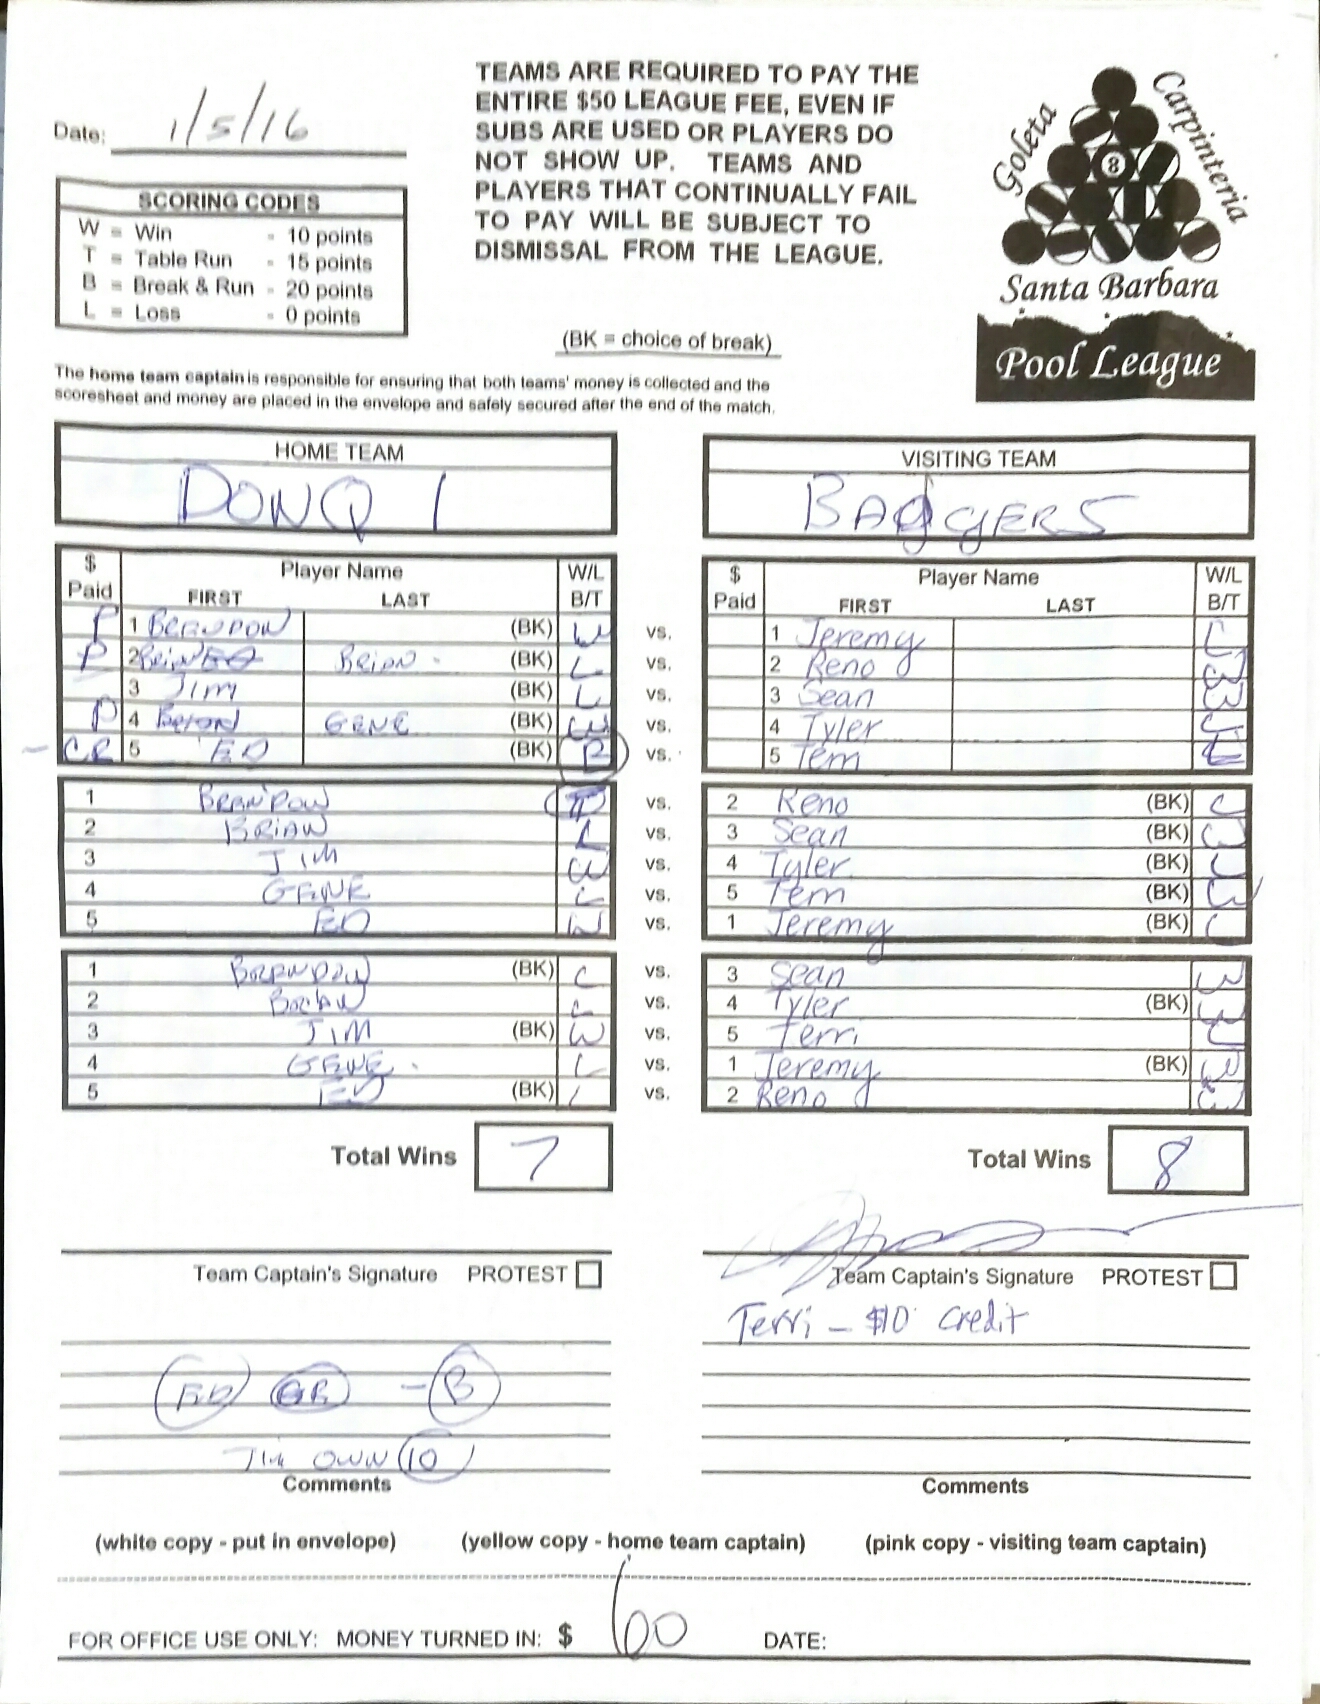 Date: 1/5/16
TEAMS ARE REQUIRED TO PAY THE
ENTIRE $50 LEAGUE FEE, EVEN IF
SUBS ARE USED OR PLAYERS DO
NOT SHOW UP. TEAMS AND
PLAYERS THAT CONTINUALLY FAIL
TO PAY WILL BE SUBJECT TO
DISMISSAL FROM THE LEAGUE.
Goleta Carpinteria
8
Santa Barbara
Pool League
SCORING CODES
W = Win - 10 points
T = Table Run - 15 points
B = Break & Run - 20 points
L = Loss - 0 points
(BK = choice of break)
The home team captain is responsible for ensuring that both teams' money is collected and the
scoresheet and money are placed in the envelope and safely secured after the end of the match.
HOME TEAM
DONQ 1
VISITING TEAM
BADGERS
$ Paid Player Name FIRST LAST W/L B/T
$ Paid Player Name FIRST LAST W/L B/T
P 1 BRANDON (BK) W vs. 1 Jeremy L
P 2 Brian (BK) L vs. 2 Reno W
3 Jim (BK) L vs. 3 Sean W
P 4 GENE (BK) W vs. 4 Tyler L
CR 5 ED (BK) B vs. 5 Terri L
1 BRANDON T vs. 2 Reno (BK) L
2 BRIAN L vs. 3 Sean (BK) W
3 JIM W vs. 4 Tyler (BK) L
4 GENE L vs. 5 Terri (BK) W
5 ED W vs. 1 Jeremy (BK) L
1 BRANDON (BK) L vs. 3 Sean W
2 BRIAN L vs. 4 Tyler (BK) W
3 JIM (BK) W vs. 5 Terri L
4 GENE L vs. 1 Jeremy (BK) W
5 ED (BK) L vs. 2 Reno W
Total Wins 7
Total Wins 8
Team Captain's Signature PROTEST
Team Captain's Signature PROTEST
Terri - $10 credit
ED CR - B
JIM OWN 10
Comments
Comments
(white copy - put in envelope) (yellow copy - home team captain) (pink copy - visiting team captain)
FOR OFFICE USE ONLY: MONEY TURNED IN: $ 60 DATE: